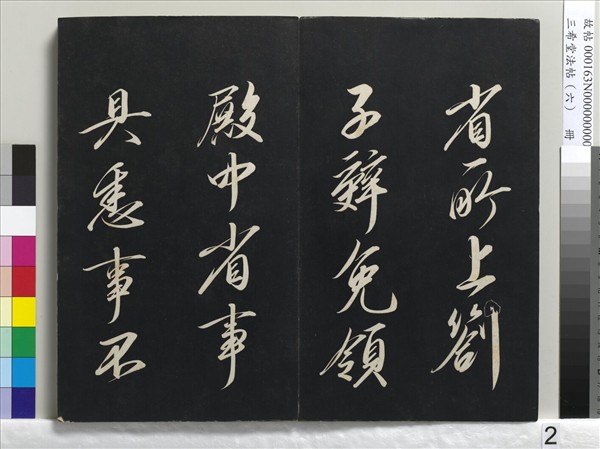 省所上劄
子辭免領
殿中省事
具悉事不
故帖 000163N000000000
三希堂法帖（六） 冊
2